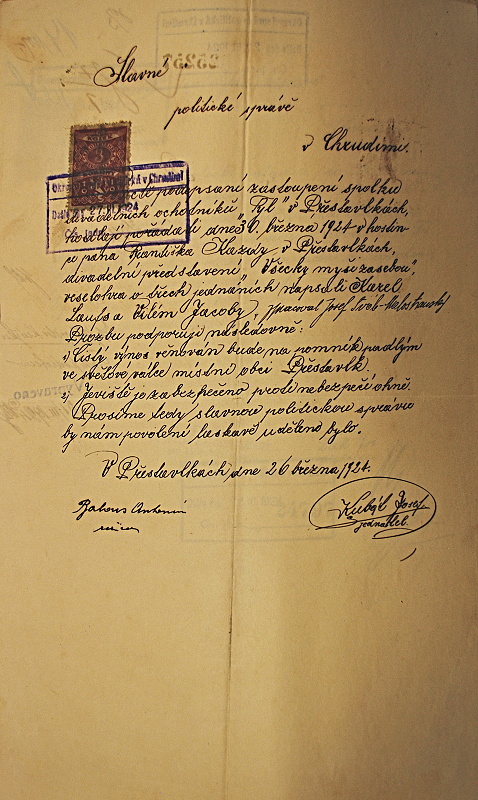 Slavné
politické správě
v Chrudimi.
podepsaní zastoupení spolku
divadelních ochotníků „Tyl" v Přestavlkách,
hodlají pořádati dne 30. března 1924 v hostin-
ci pana Františka Kazdy v Přestavlkách,
divadelní představení „Všecky myši za sebou",
veselohra o třech jednáních napsali Karel
Laufs a Vilém Jacoby, zpracoval Josef Šváb-Malostranský
Prosbu podporují následovně:
1) Čistý výnos věnován bude na pomník padlým
ve světové válce místní obci Přestavlk.
2) Jeviště je zabezpečeno proti nebezpečí ohně.
Prosíme tedy slavnou politickou správu
by nám povolení laskavě uděleno bylo.
V Přestavlkách, dne 26 března 1924.
Antonín
Kubát Josef
jednatel.